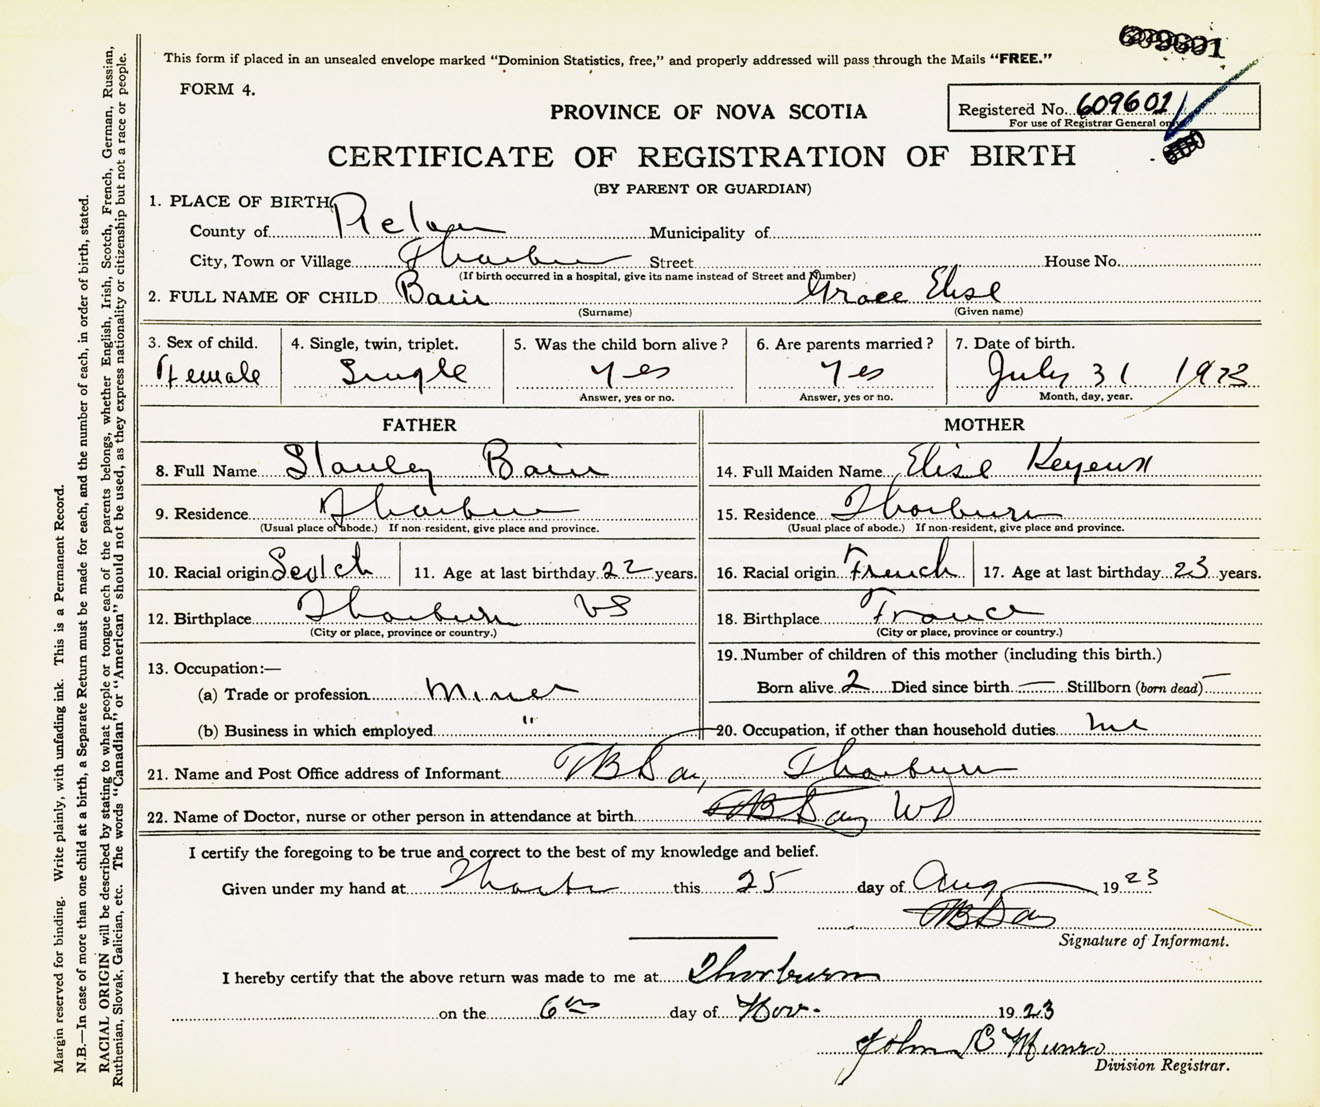 This form if placed in an unsealed envelope marked "Dominion Statistics, free," and properly addressed will pass through the Mails "FREE."
FORM 4.
PROVINCE OF NOVA SCOTIA
Registered No. 609601
For use of Registrar General only
CERTIFICATE OF REGISTRATION OF BIRTH
(BY PARENT OR GUARDIAN)
1. PLACE OF BIRTH
County of Municipality of
City, Town or Village Thorburn Street House No.
(If birth occurred in a hospital, give its name instead of Street and Number)
2. FULL NAME OF CHILD Bain Grace Elise
(Surname) (Given name)
3. Sex of child. 4. Single, twin, triplet. 5. Was the child born alive? 6. Are parents married? 7. Date of birth.
Female Single Yes Yes July 31 1923
Answer, yes or no. Answer, yes or no. Month, day, year.
FATHER MOTHER
8. Full Name Stanley Bain
14. Full Maiden Name Elise
9. Residence Thorburn
(Usual place of abode.) If non-resident, give place and province.
15. Residence Thorburn
(Usual place of abode.) If non-resident, give place and province.
10. Racial origin Scotch 11. Age at last birthday 22 years.
16. Racial origin French 17. Age at last birthday 23 years.
12. Birthplace Thorburn NS
(City or place, province or country.)
18. Birthplace France
(City or place, province or country.)
13. Occupation:—
(a) Trade or profession Miner
(b) Business in which employed "
19. Number of children of this mother (including this birth.)
Born alive 2 Died since birth — Stillborn (born dead) —
20. Occupation, if other than household duties
21. Name and Post Office address of Informant Thorburn
22. Name of Doctor, nurse or other person in attendance at birth
I certify the foregoing to be true and correct to the best of my knowledge and belief.
Given under my hand at this 25 day of Aug 1923
Signature of Informant.
I hereby certify that the above return was made to me at Thorburn
on the 6th day of Nov. 1923
John C Munro
Division Registrar.
Margin reserved for binding. Write plainly, with unfading ink. This is a Permanent Record.
N.B.—In case of more than one child at a birth, a Separate Return must be made for each, and the number of each, in order of birth, stated.
RACIAL ORIGIN will be described by stating to what people or tongue each of the parents belongs, whether English, Irish, Scotch, French, German, Russian,
Ruthenian, Slovak, Galician, etc. The words "Canadian" or "American" should not be used, as they express nationality or citizenship but not a race or people.